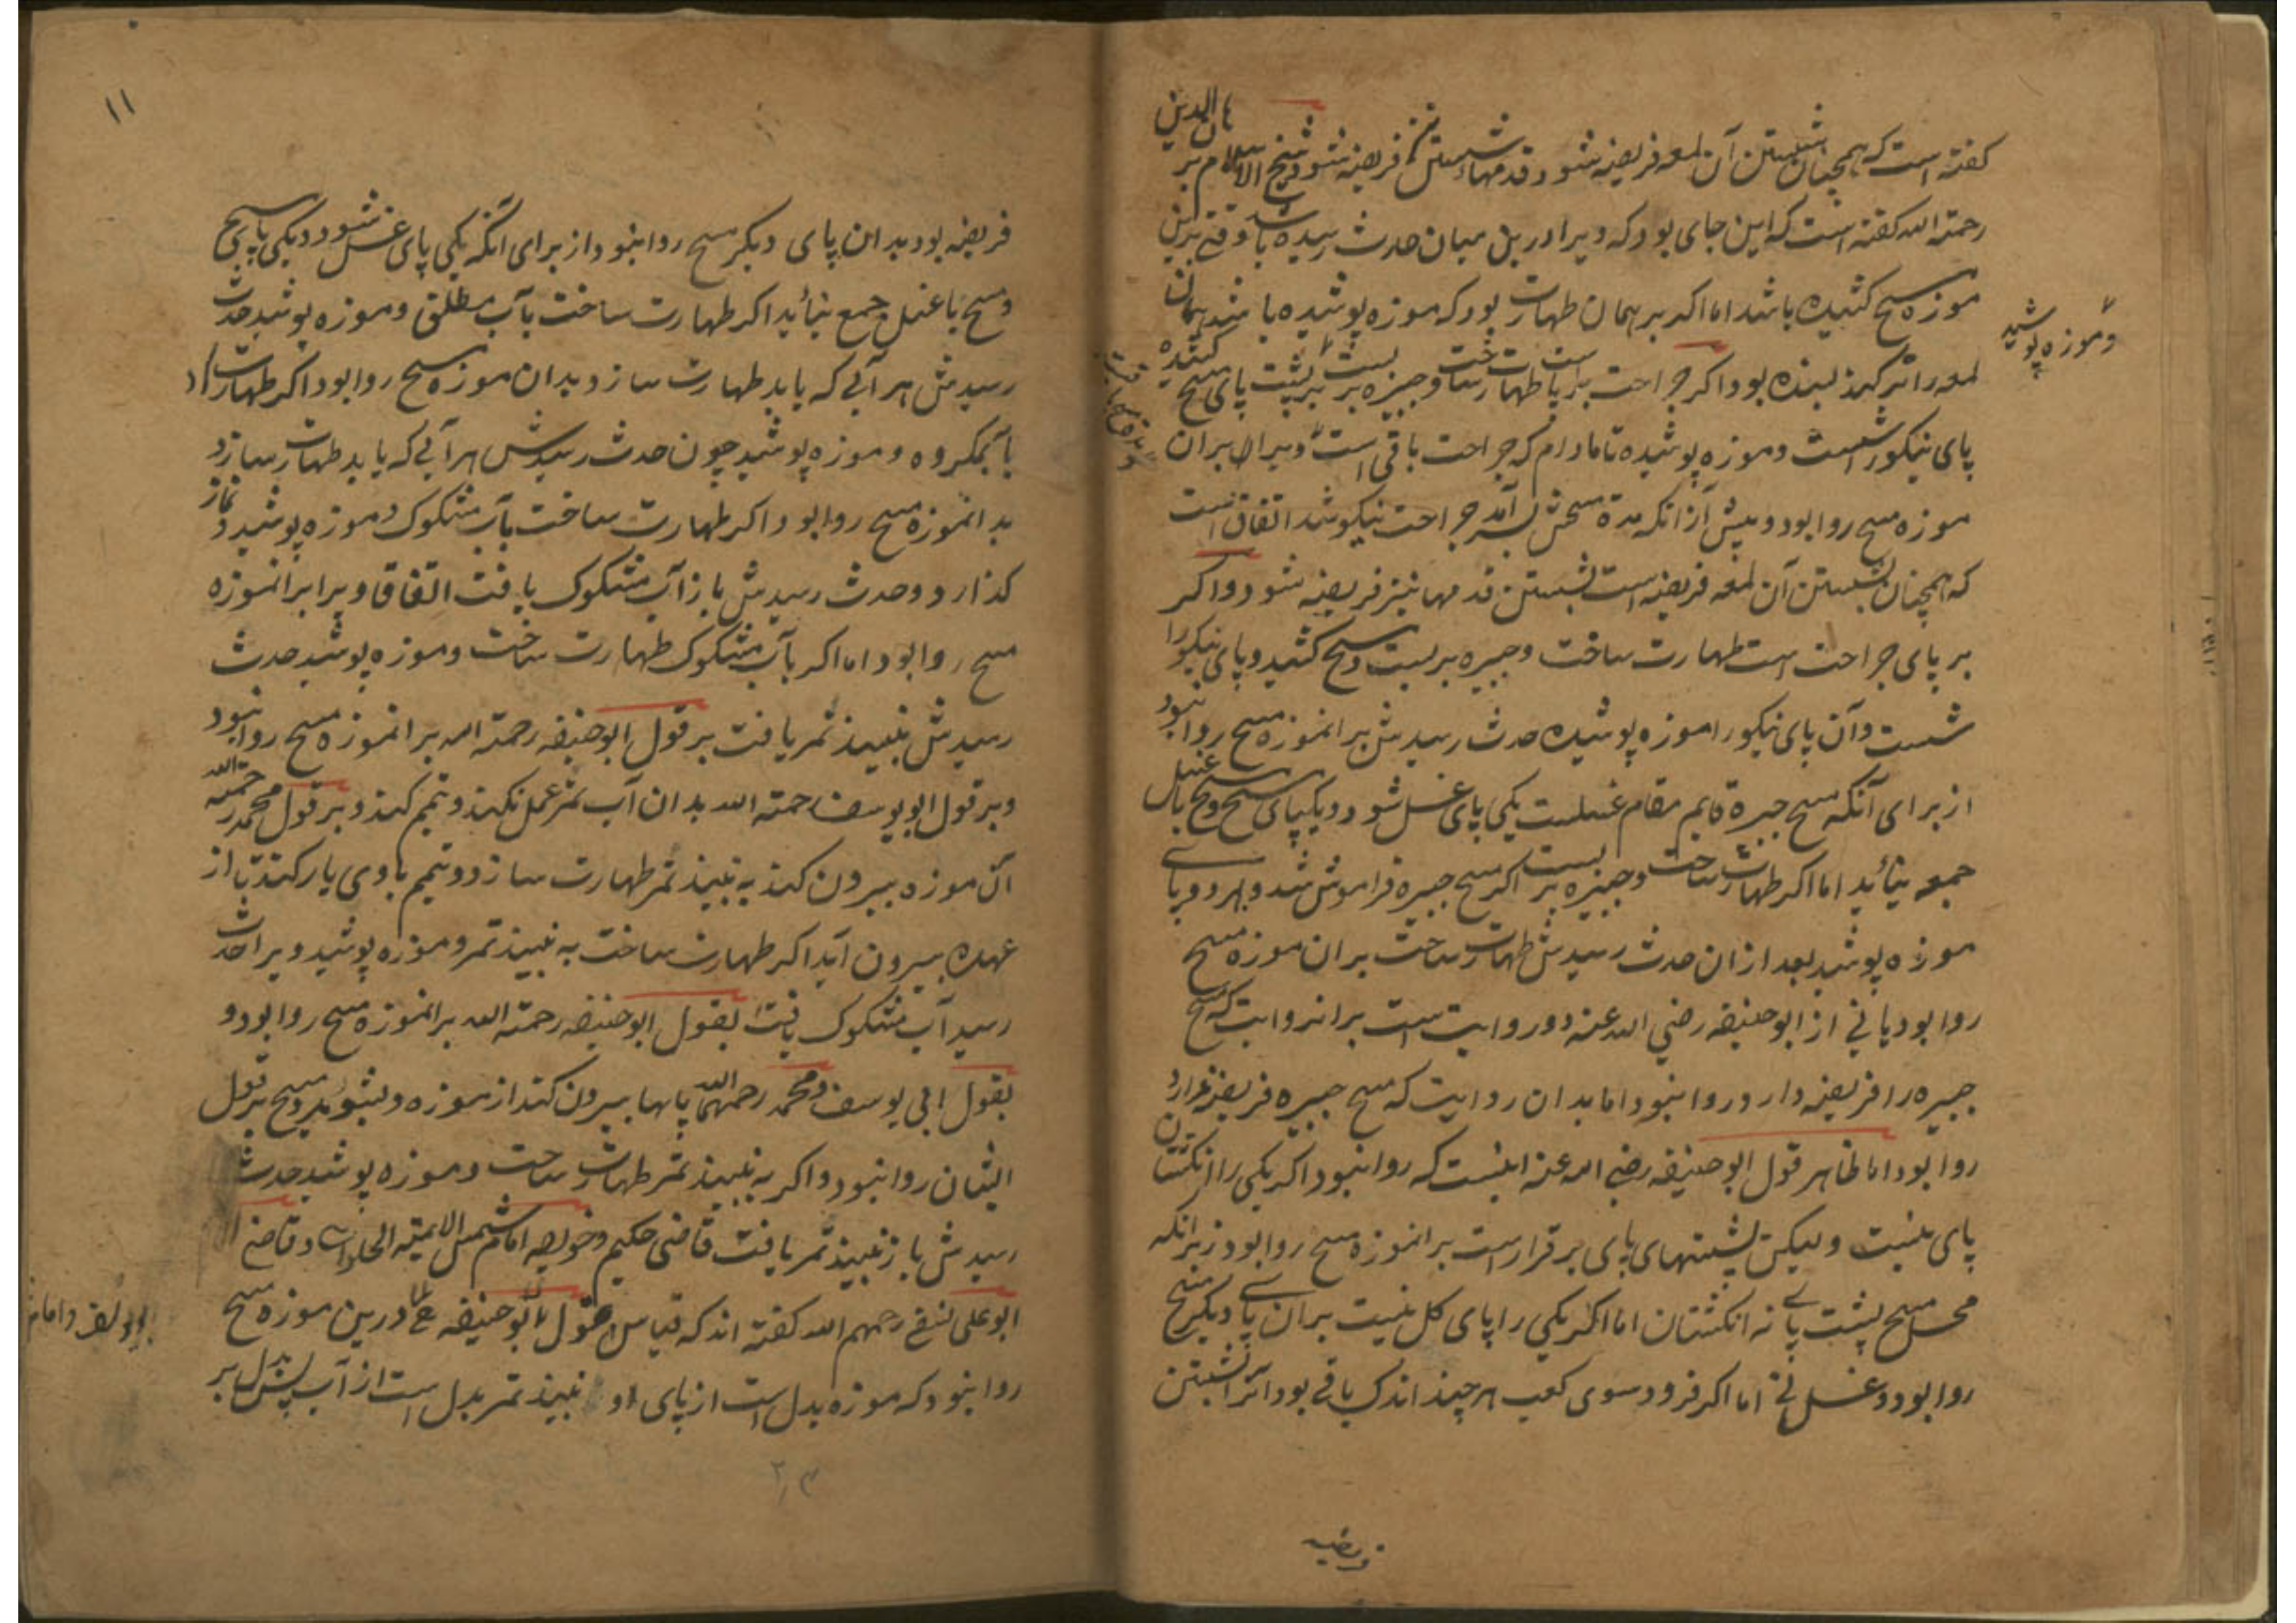 گفته است که همچنان شستن آن لمعه فریضه شود قدمها شستن نیز فریضه شود شیخ الاسلام بر
هان الدین
رحمته الله گفته است که این جای بود که ویرا درین میان حدث رسیده باشد وقتی برین
موزه مسح کشیده باشد اما اگر بر همان طهارت بود که موزه پوشیده باشد همان
وموزه پوشید
لمعه را تر کند بسنده بود اگر جراحت بر پا است طهارت ساخت وجبیره بر بست بر پشت پای مسح کشیده
پای نیکو را شست وموزه پوشیده تا مادام که جراحت باقی است ویرا بران
موزه مسح روا بود وپیش از انکه مدة مسحش بسر آمد جراحت نیکو شد اتفاق است
که همچنان شستن آن لمعه فریضه است شستن قدمها نیز فریضه شود واگر
بر پای جراحت است طهارت ساخت وجبیره بر بست ومسح کشید وپای نیکورا
شست وآن پای نیکورا موزه پوشیده حدث رسیدش برانموزه مسح روا نبود
از برای آنکه مسح جبیره قایم مقام غسلست یکی پای غسل شود ودیگپای مسح ومسح با غسل
جمعه نیاید اما اگر طهارت ساخت وجبیزه بر بست اگر مسح جبیره فراموش شد وبهر دو پای
موزه پوشید بعد از ان حدث رسیدش طهارت ساخت بران موزه مسح
روا بود یا نی از ابو حنیفه رضی الله عنه دو روایت است برانروایت که مسح
جبیره را فریضه دارد روا نبود اما بدان روایت که مسح جبیره فریضه ندارد
روا بود اما ظاهر قول ابو حنیفه رضی الله عنه اینست که روا نبود اگر یکی را انگشتان
پای نیست ولیکن پشتهای پای بر قرار است برانموزه مسح روا بود زیرانکه
محل مسح پشت پای نه انگشتان اما اگر یکی را پای کل نیست بران پای دیگر مسح
روا بود وغسل نی اما اگر فرود سوی کعب هر چند اندک باقی بود آنرا شستن
فریضه
۱۱
فریضه بود بدان پای دیگر مسح روا نبود از برای آنکه یکی پای غسل شود ودیگی پای مسح
ومسح با غسل جمع نیاید اگر طهارت ساخت بآب مطلق وموزه پوشید حدث
رسیدش هر آبی که یابد طهارت سازد بدان موزه مسح روا بود اگر طهارت
بآبمکروه وموزه پوشید چون حدث رسیدش هر آبی که یابد طهارت سازد
بدانموزه مسح روا بود اگر طهارت ساخت بآب مشکوک وموزه پوشید ونماز
گذارد وحدث رسیدش باز آب مشکوک یافت اتفاقا ویرا برانموزه
مسح روا بود اما اگر بآب مشکوک طهارت ساخت وموزه پوشید حدث
رسیدش نبیذ تمر یافت بر قول ابو حنیفه رحمته الله برانموزه مسح روا نبود
وبر قول ابو یوسف رحمته الله بدان آب تمر عمل نکند وتیمم کند وبر قول محمد رحمته الله
آن موزه بیرون کند به نبیذ تمر طهارت سازد وتیمم باوی یار کند تا از
عهده بیرون آید اگر طهارت ساخت به نبیذ تمر وموزه پوشید ویرا حدث
رسید آب مشکوک یافت بقول ابو حنیفه رحمته الله برانموزه مسح روا بود و
بقول ابی یوسف ومحمد رحمهما الله پایها بیرون کند از موزه وبشوید ومسح بر قول
ایشان روا نبود واگر به نبیذ تمر طهارت ساخت وموزه پوشید حدث
رسیدش باز نبیذ تمر یافت قاضی حکیم وخواجه امام شمس الائمه الحلوانی وقاضی
ابو علی نسفی رحمهم الله گفته اند که قیاس قول ابو حنیفه درین موزه مسح
روا نبود که موزه بدل است از پای او نبیذ تمر بدل است از آب پس بدل بر